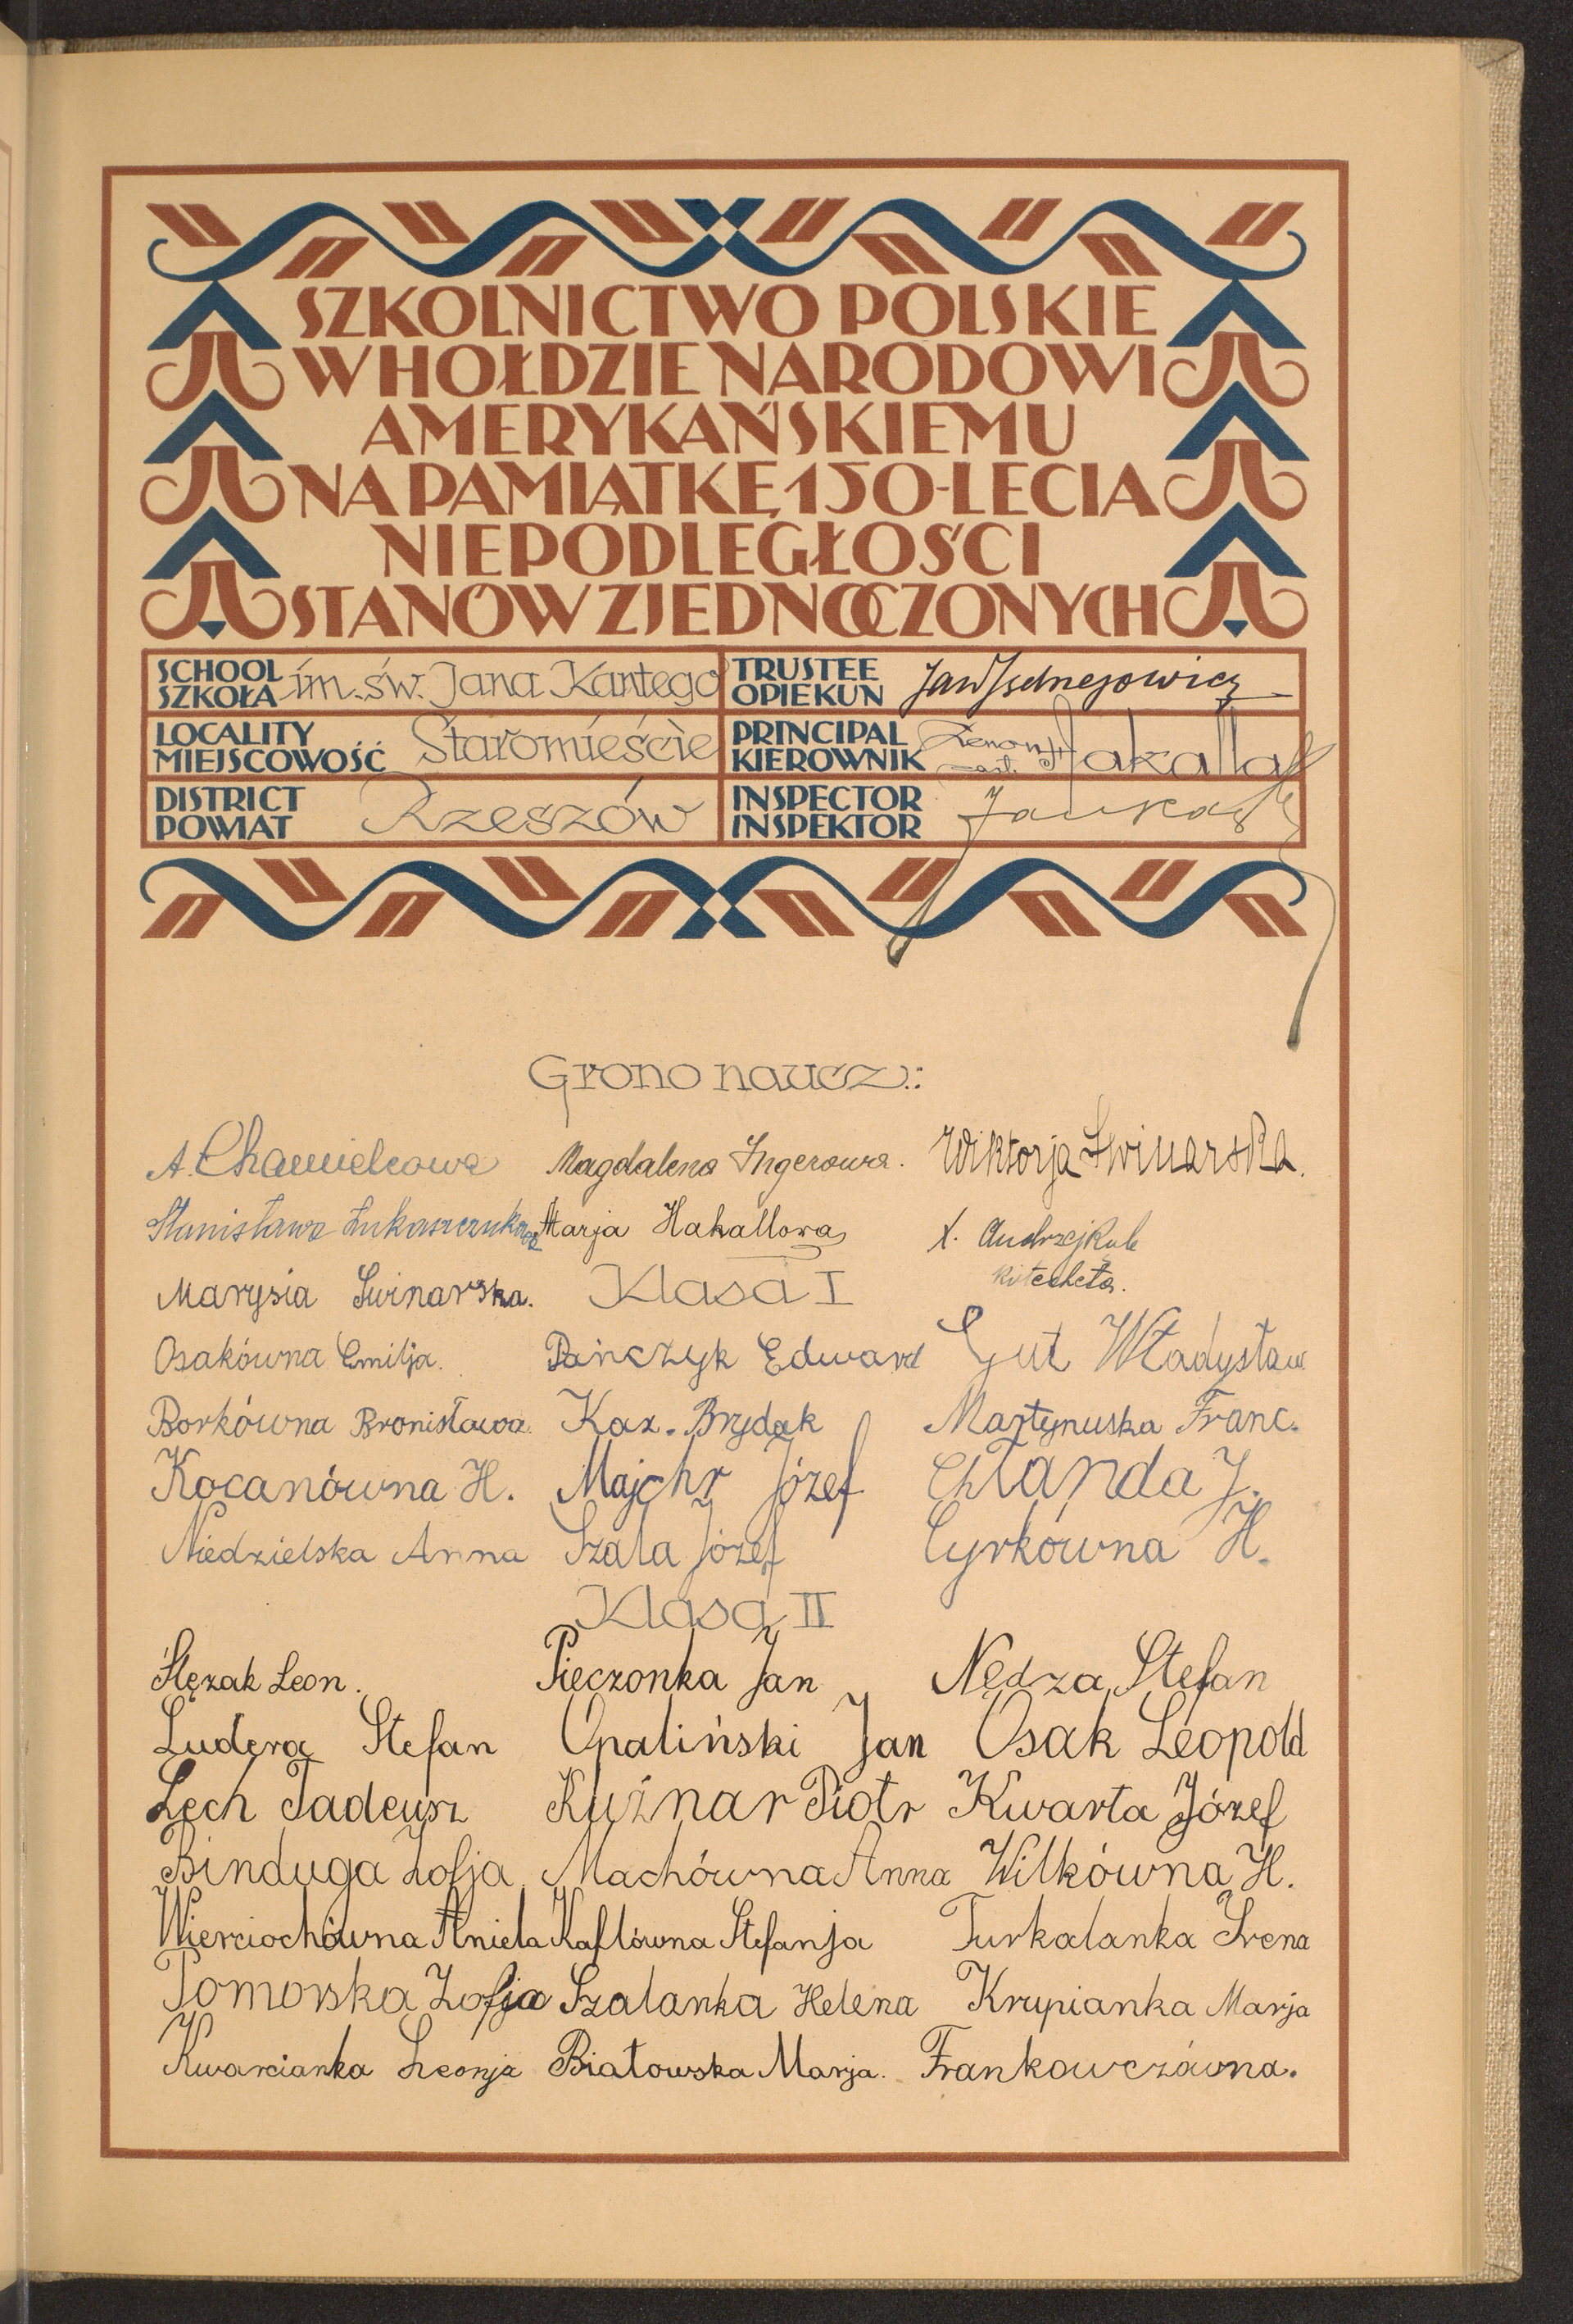 SZKOLNICTWO POLSKIE
W HOŁDZIE NARODOWI
AMERYKAŃSKIEMU
NA PAMIĄTKĘ 150-LECIA
NIEPODLEGŁOŚCI
STANÓW ZJEDNOCZONYCH
SCHOOL SZKOŁA im. św. Jana Kantego TRUSTEE OPIEKUN Jan Jędrzejowicz
LOCALITY MIEJSCOWOŚĆ Staromieście PRINCIPAL KIEROWNIK Zenon Hakalla
DISTRICT POWIAT Rzeszów INSPECTOR INSPEKTOR
Grono naucz.:
A. Chamielcowa Magdalena Ingerowa. Wiktorja Świnarska.
Stanisława Łukaszczukowa Marja Hakallowa X. Andrzej Kule
katecheta.
Klasa I
Marysia Świnarska.
Osakówna Emilja. Pańczyk Edward Gut Władysław
Borkówna Bronisława. Kaz. Brydak Martynuska Franc.
Kocanówna H. Majchr Józef Chłanda J.
Niedzielska Anna Szala Józef Cyrkówna H.
Klasa II
Ślęzak Leon. Pieczonka Jan Nędza Stefan
Ludera Stefan Opaliński Jan Osak Leopold
Lech Tadeusz Kuźnar Piotr Kwarta Józef
Binduga Zofja Machówna Anna Wilkówna H.
Wierciochówna Aniela Kaflówna Stefanja Turkalanka Irena
Pomorska Zofja Szalanka Helena Krupianka Marja
Kwarcianka Leonja Białowska Marja. Frankowczówna.